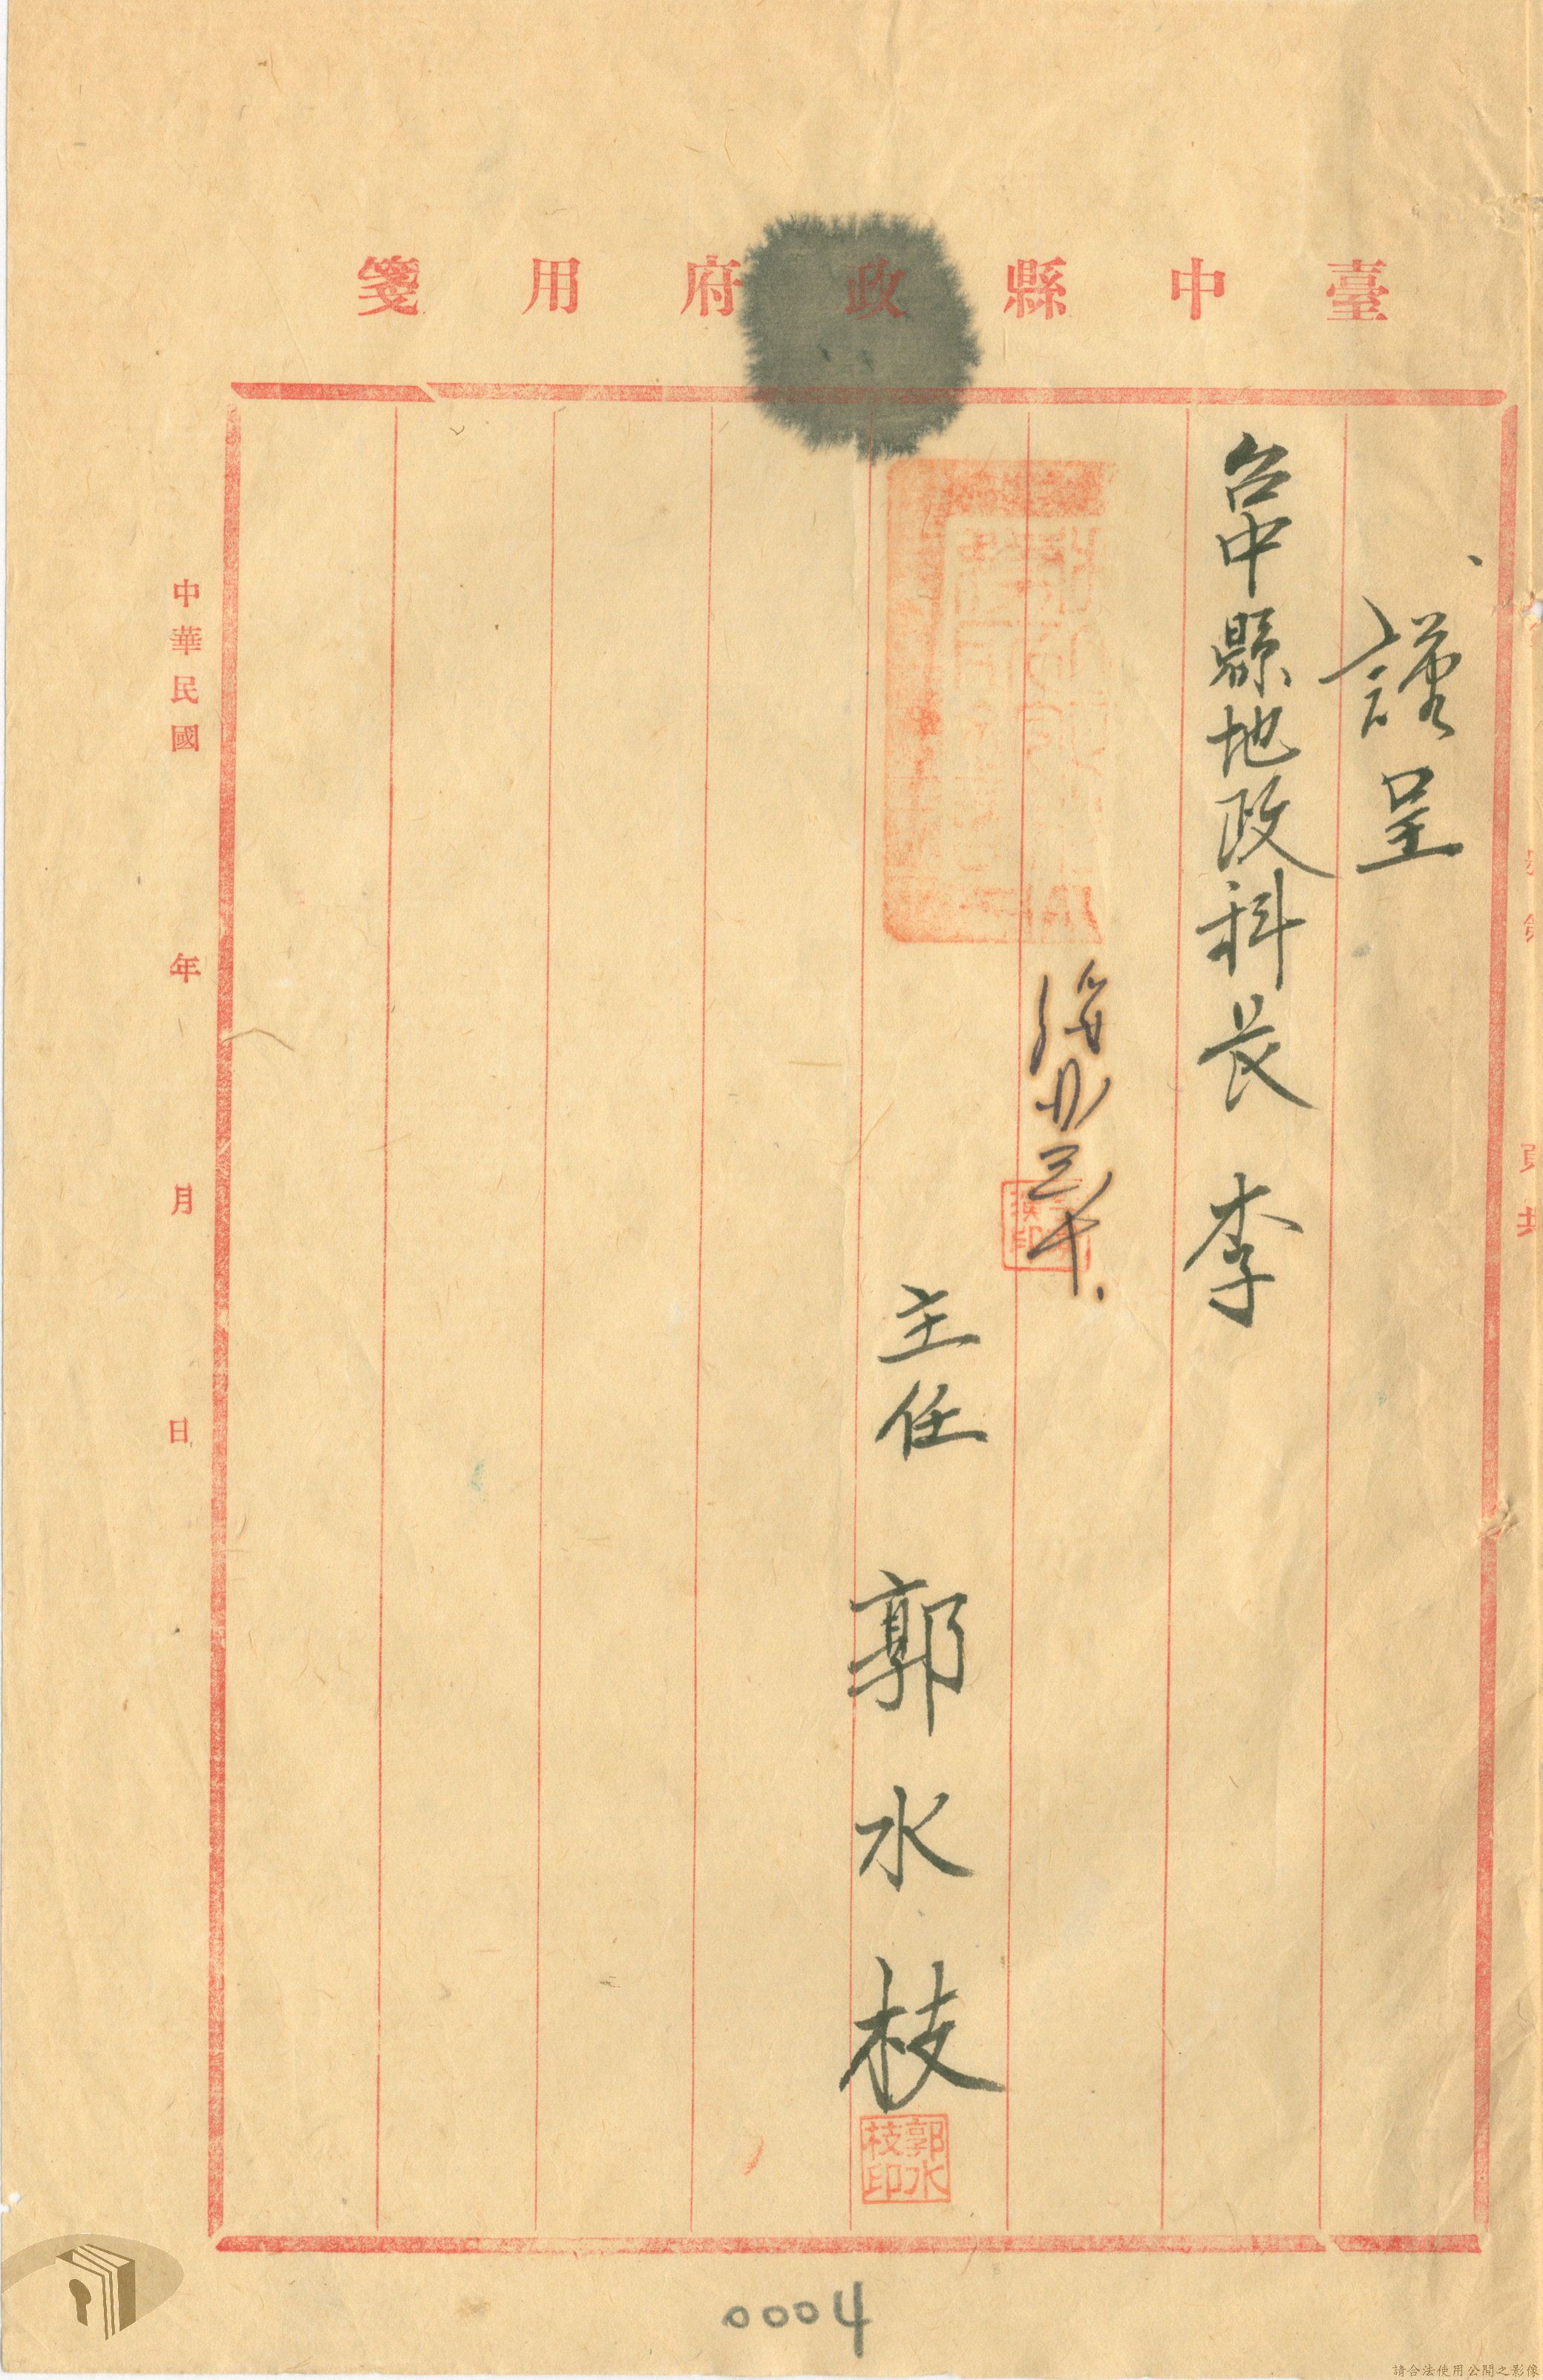 臺中縣政府用箋
謹呈
台中縣地政科長 李
主任 郭水枝
郭水枝印
中華民國 年 月 日
0004
請合法使用公開之影像